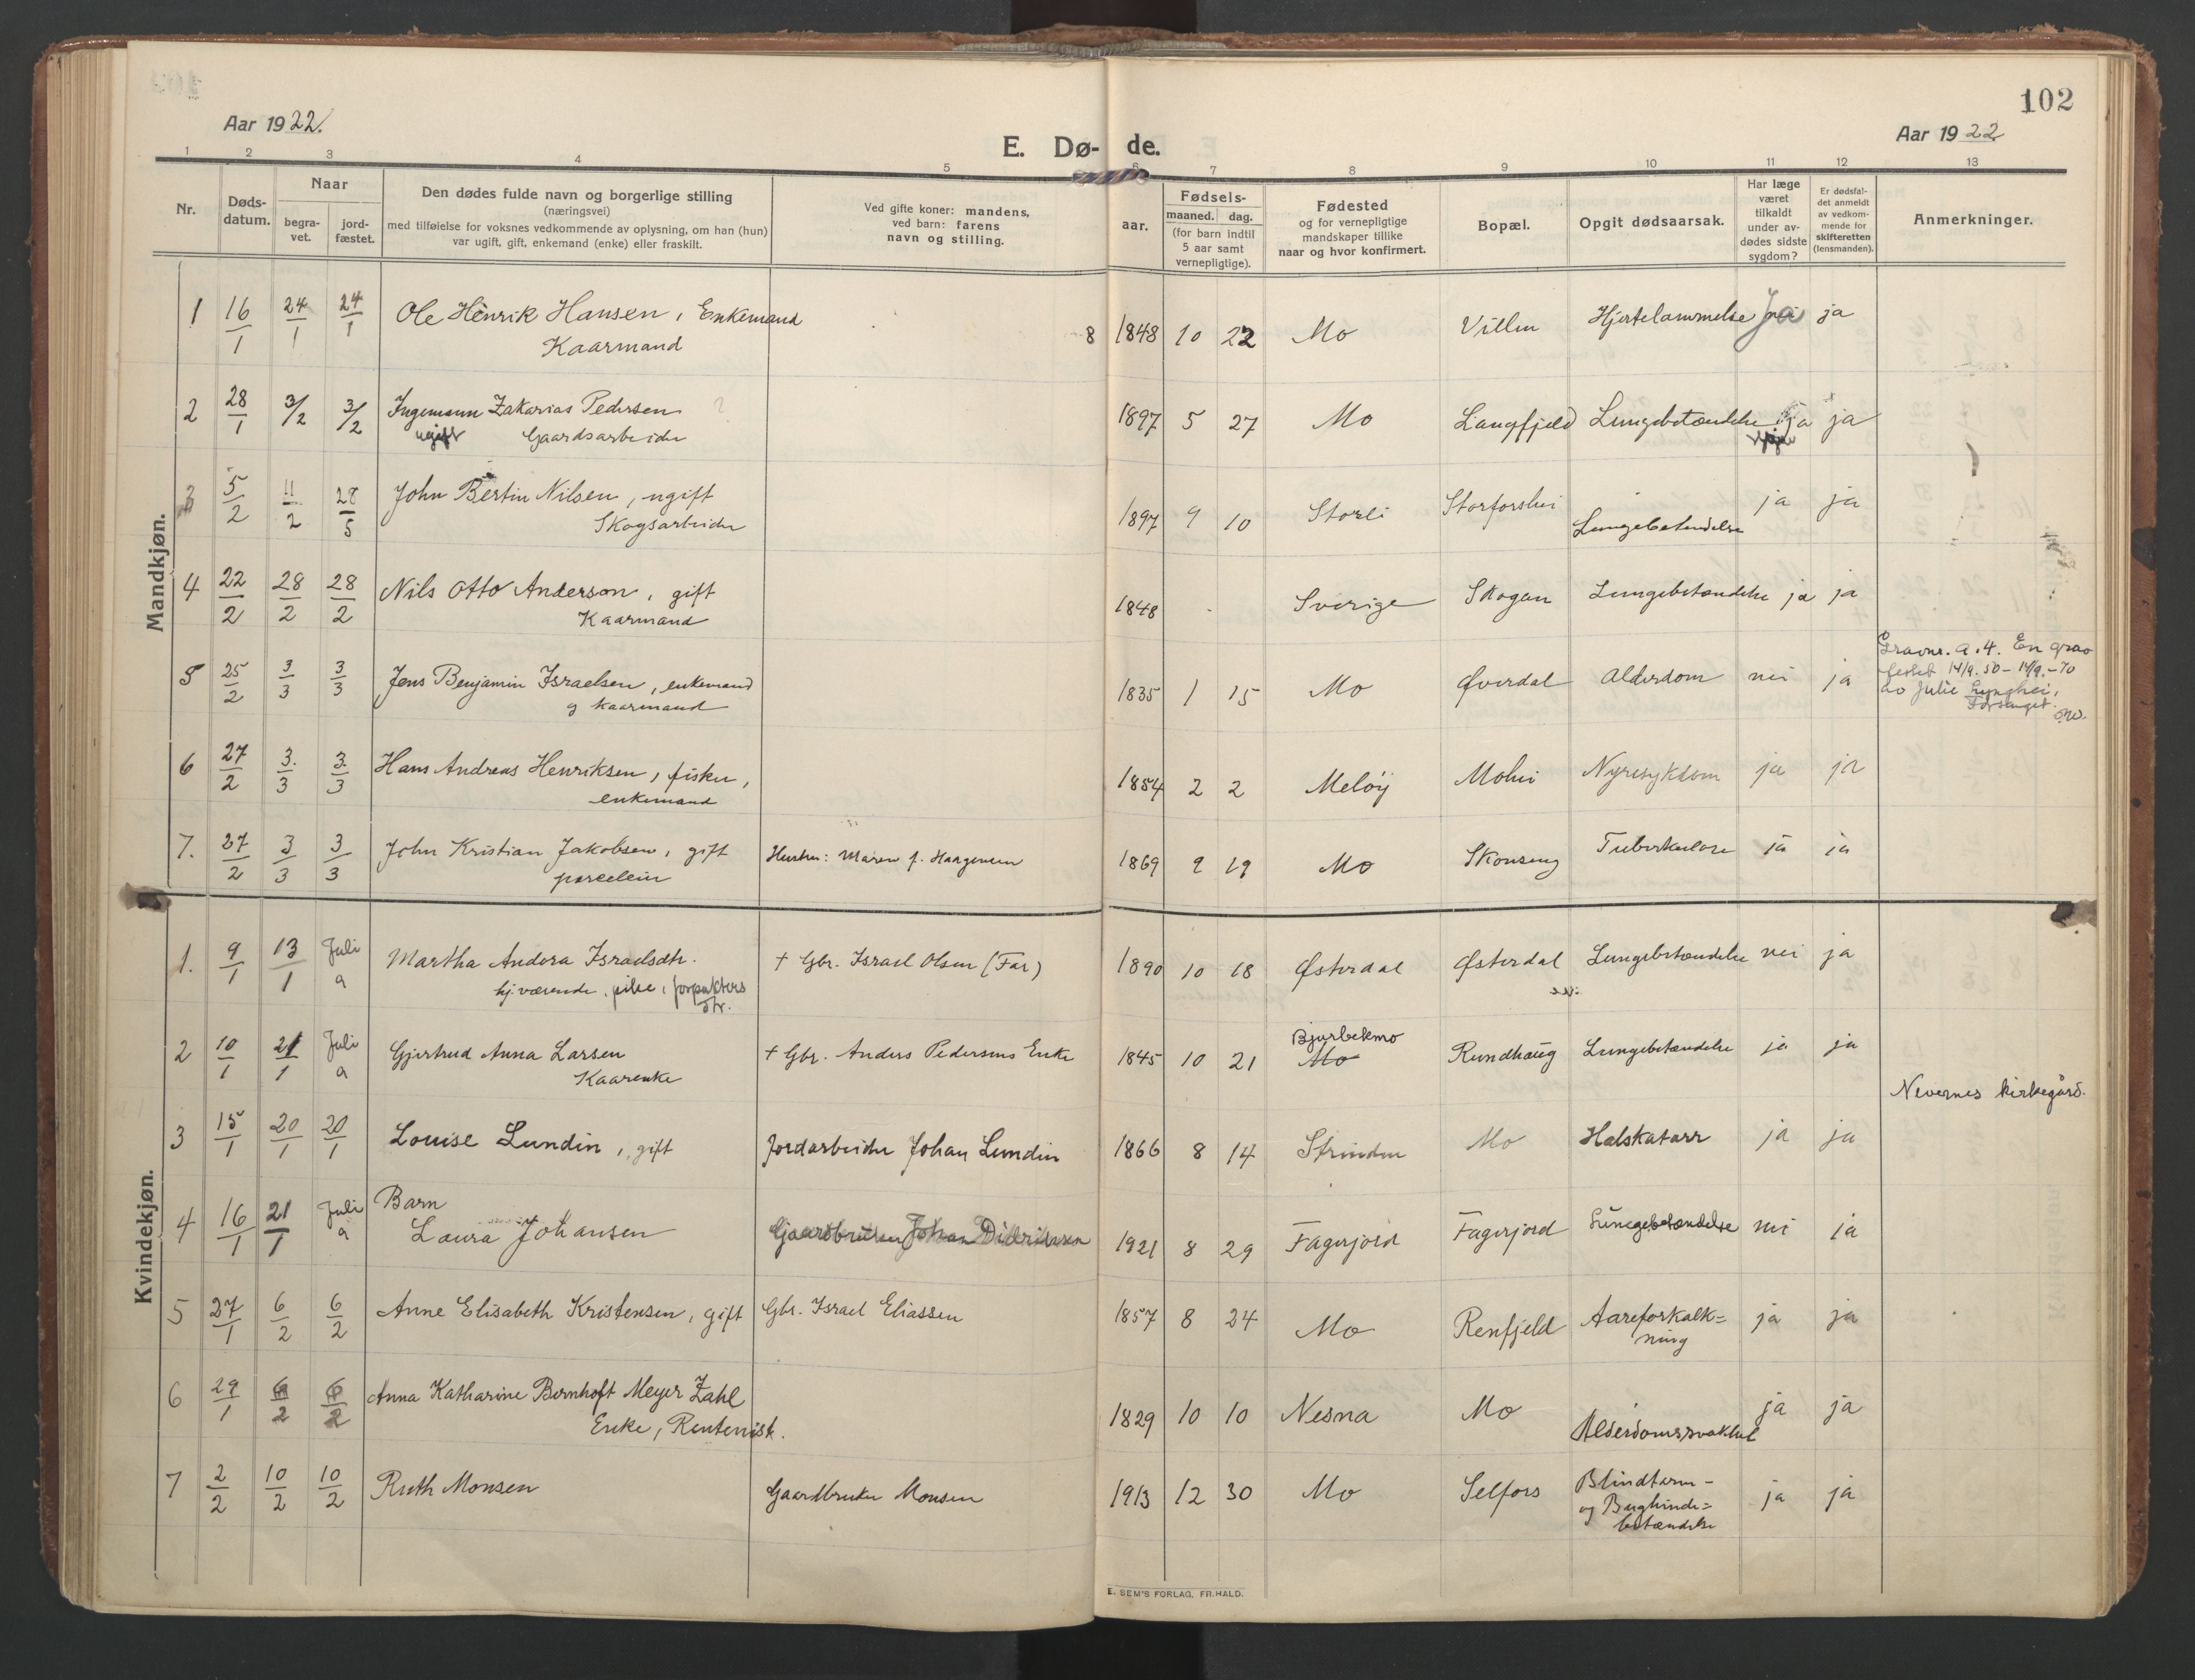 102
Aar 1922.
E. Dø- de.
Aar 1922
1 2 3 4 5 6 7 8 9 10 11 12 13
Nr.
Døds-datum.
Naar
begra-vet.
jord-fæstet.
Den dødes fulde navn og borgerlige stilling
(næringsvei)
med tilføielse for voksnes vedkommende av oplysning, om han (hun)
var ugift, gift, enkemand (enke) eller fraskilt.
Ved gifte koner: mandens,
ved barn: farens
navn og stilling.
Fødsels-
aar.
maaned. dag.
(for barn indtil
5 aar samt
vernepligtige).
Fødested
og for vernepligtige
mandskaper tillike
naar og hvor konfirmert.
Bopæl.
Opgit dødsaarsak.
Har læge
været
tilkaldt
under av-
dødes sidste
sygdom?
Er dødsfal-
det anmeldt
av vedkom-
mende for
skifteretten
(lensmanden).
Anmerkninger.
Mandkjøn.
1 16/1 24/1 24/1 Ole Henrik Hansen, Enkemand 8 1848 10 22 Mo Villen Hjertelammelse Ja ja
Kaarmand
2 28/1 3/2 3/2 Ingemann Zakarias Pedersen ? 1897 5 27 Mo Langfjeld Lungebetændelse ja ja
ugift Gaardsarbeider
3 5/2 11/2 28/5 John Bertin Nilsen, ugift 1897 9 10 Storli Storforshei Lungebetendelse ja ja
Skogsarbeider
4 22/2 28/2 28/2 Nils Otto Anderson, gift 1848 Sverige Skogan Lungebetændelse ja ja
Kaarmand
5 25/2 3/3 3/3 Jens Benjamin Israelsen, enkemand 1835 1 15 Mo Øverdal Alderdom nei ja
og kaarmand
Gravnr. a. 4. En grav
festet 14/9.50 - 14/9.-70
av Julie Lynghei,
6 27/2 3/3 3/3 Hans Andreas Henriksen, fisker, 1854 2 2 Meløy Mohei Nyresykdom ja ja
enkemand
7. 27/2 3/3 3/3 John Kristian Jakobsen, gift Hustru: Maren f. Haagensen 1869 9 19 Mo Skonseng Tuberkulose ja ja
parcelleier
Kvindekjøn.
1. 9/1 13/1 Juli a Martha Andora Israelsdtr. † Gbr. Israel Olsen (Far) 1890 10 18 Østerdal Østerdal Lungebetændelse nei ja
hj.værende, pike, forpakters
dtr.
2 10/1 21/1 Juli a Gjertrud Anna Larsen † Gbr. Anders Pedersens Enke 1845 10 21 Bjurbekmo Mo Rundhaug Lungebetændelse ja ja
Kaarenke
Nevernes kirkegård.
3 15/1 20/1 20/1 Louise Lundin, gift Jordarbeider Johan Lundin 1866 8 14 Strinden Mo Halskatarr ja ja
4 16/1 21/1 Juli a Barn
Laura Johansen Gaardbruker Johan Didriksen 1921 8 29 Fagerjord Fagerjord Lungebetændelse nei ja
5 27/1 6/2 6/2 Anne Elisabeth Kristensen, gift Gbr. Israel Eliassen 1857 8 24 Mo Renfjeld Aareforkalk= ja ja
ning
6 29/1 6/2 6/2 Anna Katharine Bernhoft Meyer Zahl 1829 10 10 Nesna Mo Alderdomssvakhet ja ja
Enke, Rentenist.
7 2/2 10/2 10/2 Ruth Monsen Gaardbruker Monsen 1913 12 30 Mo Selfors Blindtarm- ja ja
og Bughinde=
betændelse
E. SEM'S FORLAG, FR.HALD.